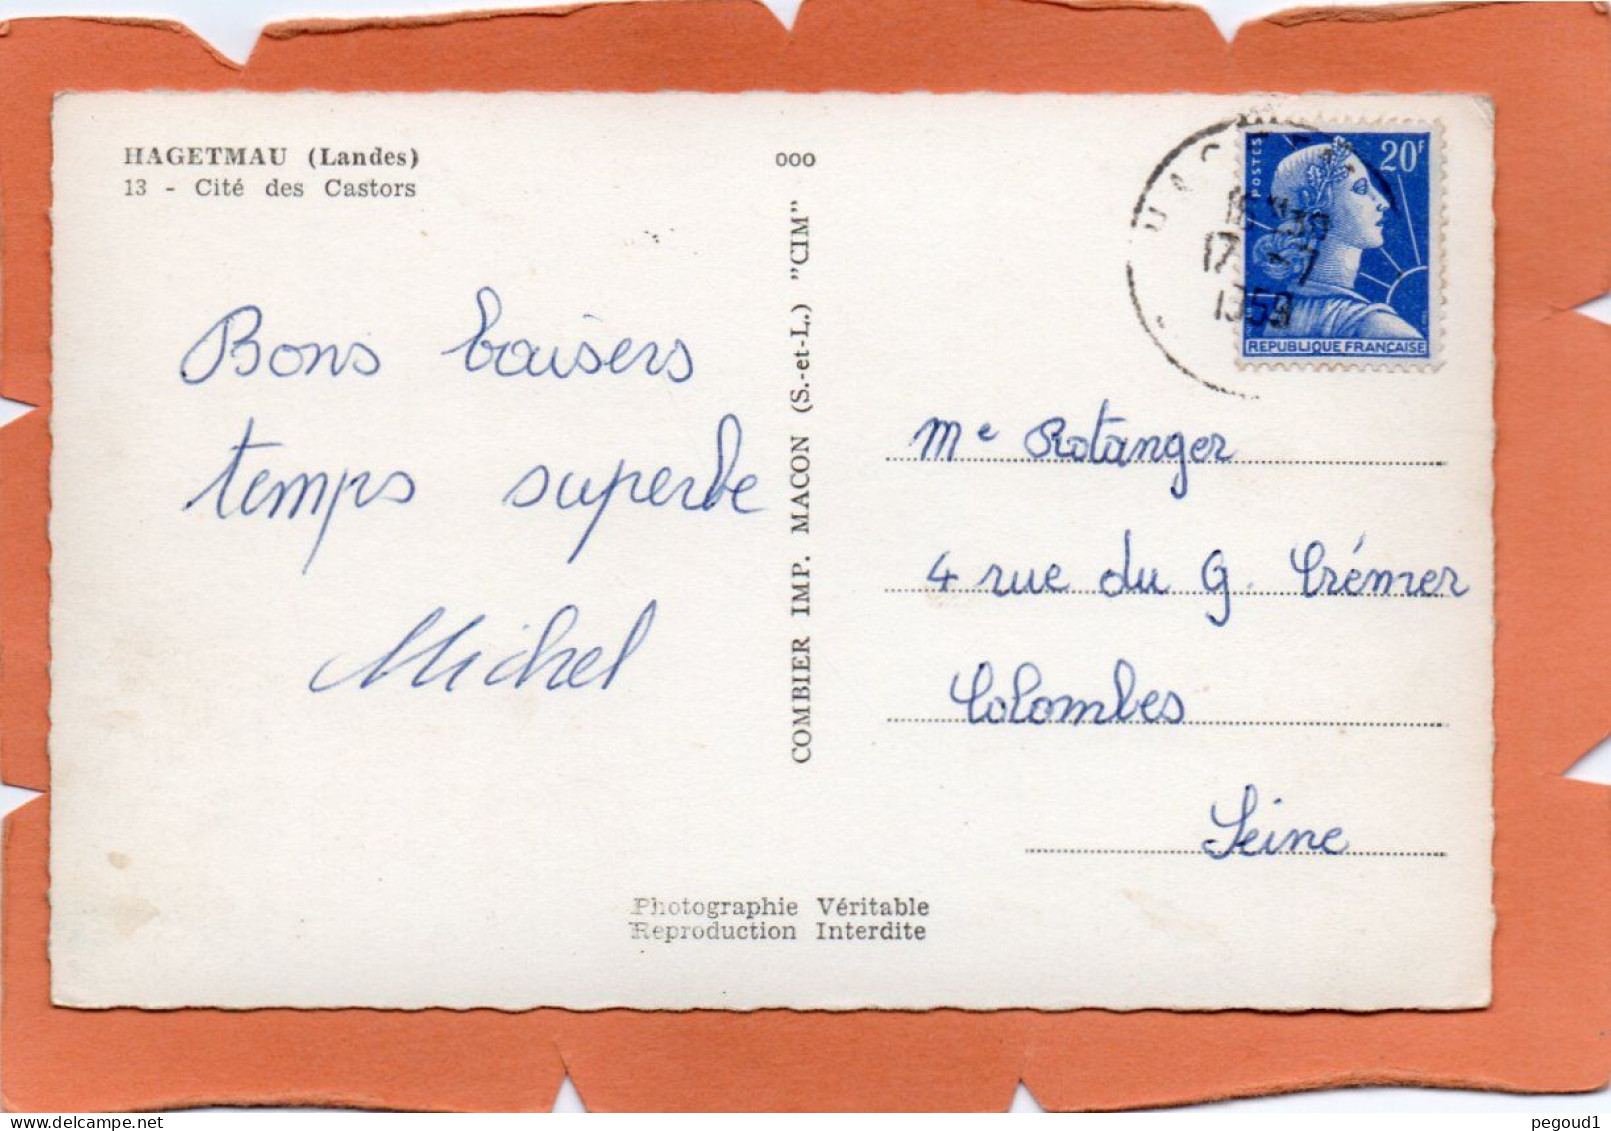 HAGETMAU (Landes)
13 - Cité des Castors
Bons baisers
temps superbe
Michel
000
COMBIER IMP. MACON (S.-et-L.) "CIM"
POSTES
20F
REPUBLIQUE FRANÇAISE
17 - 7
1959
Me Rotanger
4 rue du G. Crémer
Colombes
Seine
Photographie Véritable
Reproduction Interdite
pegoud1